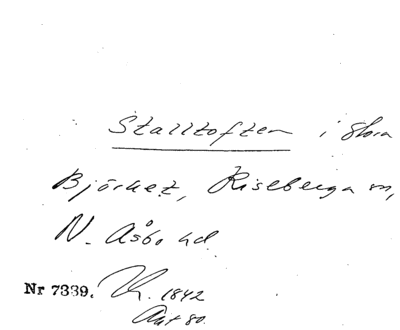 Stalltoften i Stora
Björket, Riseberga sn,
N. Åsbo hd.
Nr 7339. K. 1842
Akt 80.